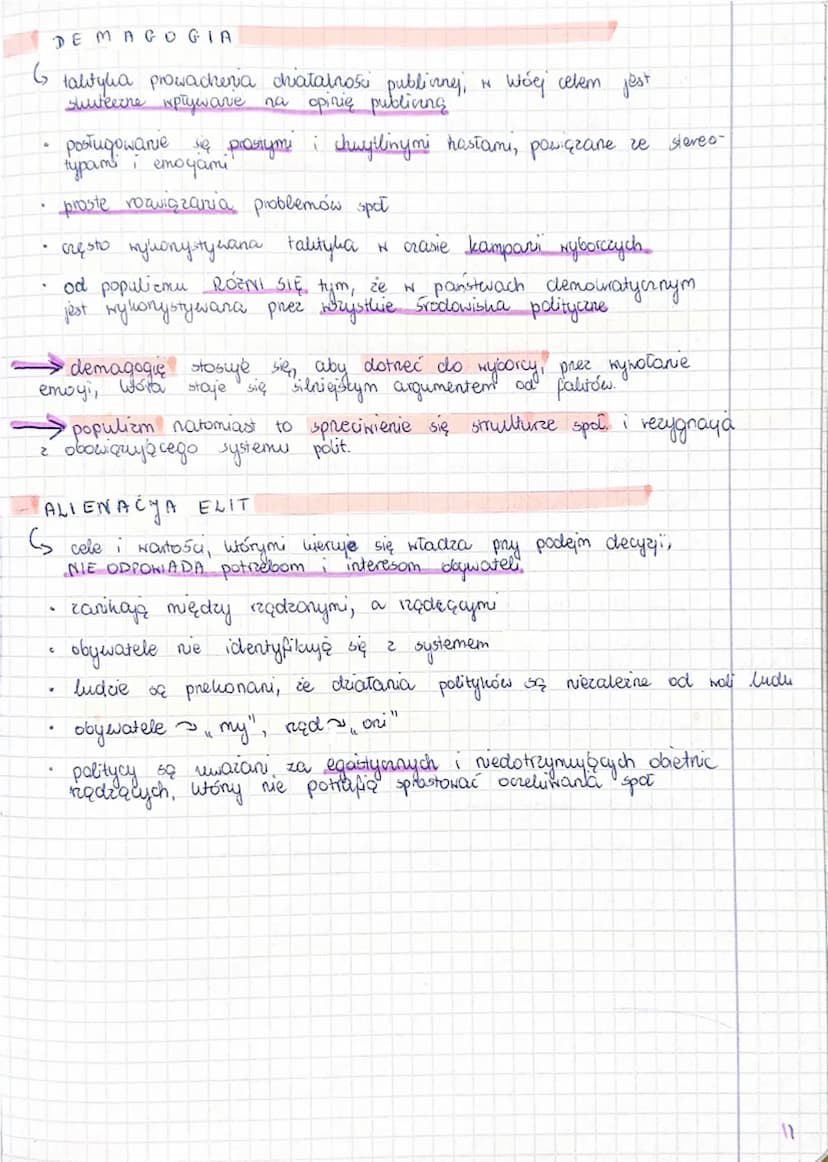 DEMAGOGIA
↳ taktyka prowadzenia działalności publicznej, w której celem jest
skuteczne wpływanie na opinię publiczną
• posługowanie się prostymi i chwytlinymi hasłami, powiązane ze stereo-
typami i emocjami
• proste rozwiązania problemów społ
• często wykorzystywana taktyka w czasie kampanii wyborczych
• od populizmu RÓŻNI SIĘ tym, że w państwach demokratycznym
jest wykorzystywana przez wszystkie środowiska polityczne
→ demagogię stosuje się, aby dotrzeć do wyborcy, przez wywołanie
emocji, która staje się silniejszym argumentem od faktów.
→ populizm natomiast to sprzeciwienie się strukturze społ. i rezygnacja
z obowiązującego systemu polit.
ALIENACJA ELIT
↳ cele i wartości, którymi kieruje się władza przy podejm decyzji,
NIE ODPOWIADA potrzebom i interesom obywateli.
• zanikają między rządzonymi, a rządzącymi
• obywatele nie identyfikują się z systemem
• ludzie są przekonani, że działania polityków są niezależne od woli ludu
• obywatele ~> „my", rząd ~> „oni"
• politycy są uważani za egoistycznych i niedotrzymujących obietnic
rządzących, który nie potrafią sprostować oczekiwania społ